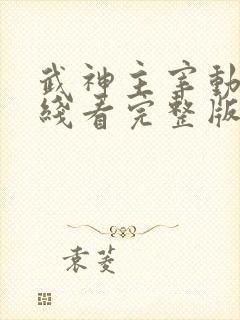 武神主宰動
綫看完整版
袁菱